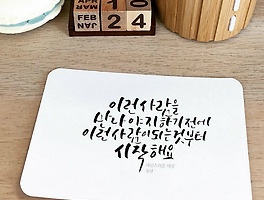 APR
MAR
FEB
JAN
1 0
2 4
이런 사람을
만나야지 하기 전에
이런 사람이 되는 것부터
시작해요